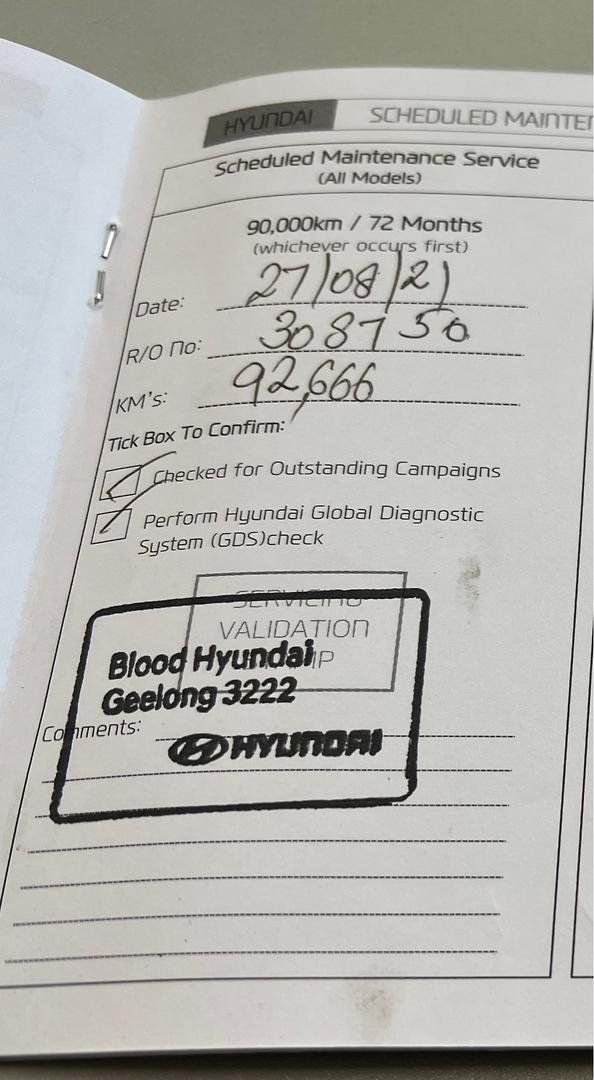 HYUNDAI SCHEDULED MAINTE
Scheduled Maintenance Service
(All Models)
90,000km / 72 Months
(whichever occurs first)
Date: 27/08/21
R/O No: 308750
KM's: 92,666
Tick Box To Confirm:
Checked for Outstanding Campaigns
Perform Hyundai Global Diagnostic
System (GDS)check
SERVICING
VALIDATION
Blood Hyundai
Geelong 3222
Comments:
HYUNDAI